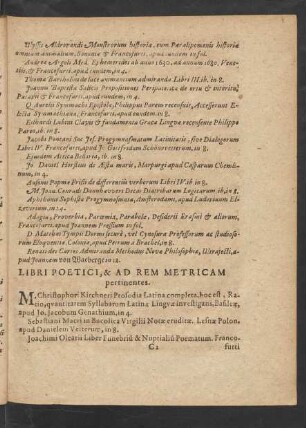 Ulyssis Aldrovandi Monstrorum historia, cum Paralipomenis historiæ
omnium animalium, Bononiæ & Francofurti, apud eundem in fol.
Andreæ Argoli Med. Ephemerides ab anno 1630. ad annum 1680. Vene-
tiis, & Francofurti, apud eundem, in 4.
Thomæ Bartholini de luce animantium admirandæ Libri III. ib. in 8.
Joannis Baptistæ
Patavii & Francofurti, apud eundem, in 4.
Q. Aurelii Symmachi Epistolæ, Philippus Pareus recensuit, Accesserunt E-
lectia Symmachiana, Francofurti, apud eundem in 8.
Eilhardi Lubini Clavis & fundamenta Græcæ Linguæ recensente Philippo
Pareo, ib. in 8.
Jacobi Pontani Soc. Jes. Progymnasmatum Latinitatis, sive Dialogorum
Libri IV. Francofurti, apud J. Gotfredum Schönwetterum, in 8.
Ejusdem Attica Bellaria, ib. in 8.
Jo. Daniel Horstius de Æstu maris, Marpurgi apud Casparum Chemli-
num, in 4.
Ausonii Popmæ Frisii de differentiis verborum Libri IV. ib. in 8.
in 8.
Aphthonii Sophistæ Progymnasmata, Amsterodami, apud Ludovicum El-
zevirium, in 4.
Adagia, Proverbia, Parœmiæ, Parabolæ, Desiderii Erasmi & aliorum,
Francofurti, apud Joannem Pressium in fol.
D. Martini Tympii Dormi secure, vel Cynosura Professorum ac studioso-
rum Eloquentiæ Coloniæ, apud Petrum à Brachel, in 8.
Renati des Cartes Admiranda Methodus Novæ Philosophiæ, Ultrajecti, a-
pud Joannem von Waesberge in 12.
LIBRI POETICI, & AD REM METRICAM
pertinentes.
M. Christophori Kirchneri Prosodia Latina completa, hoc est, Ra-
tio, quantitatem Syllabarum Latinæ Linguæ investigans, Basileæ,
apud Jo. Jacobum Genathium, in 4.
Sebastiani Macri in Bucolica Virgilii Notæ eruditæ. Lesnæ Polon.
apud Danielem Vetterum, in 8.
Joachimi Olearii Liber Funebris & Nuptialis Poematum. Franco-
C 2
furti